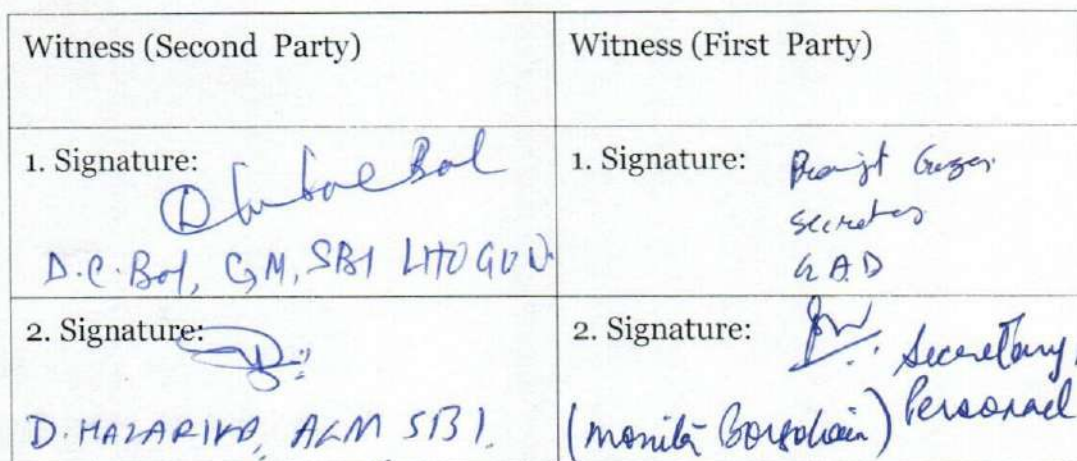 Witness (Second Party)
Witness (First Party)
1. Signature:
D.C. Bol, GM, SBI LHO GUW.
1. Signature:
Secretary
GAD
2. Signature:
D. HAZARIKA, AGM SBI.
2. Signature:
Secretary,
(Monita Borgohain) Personnel